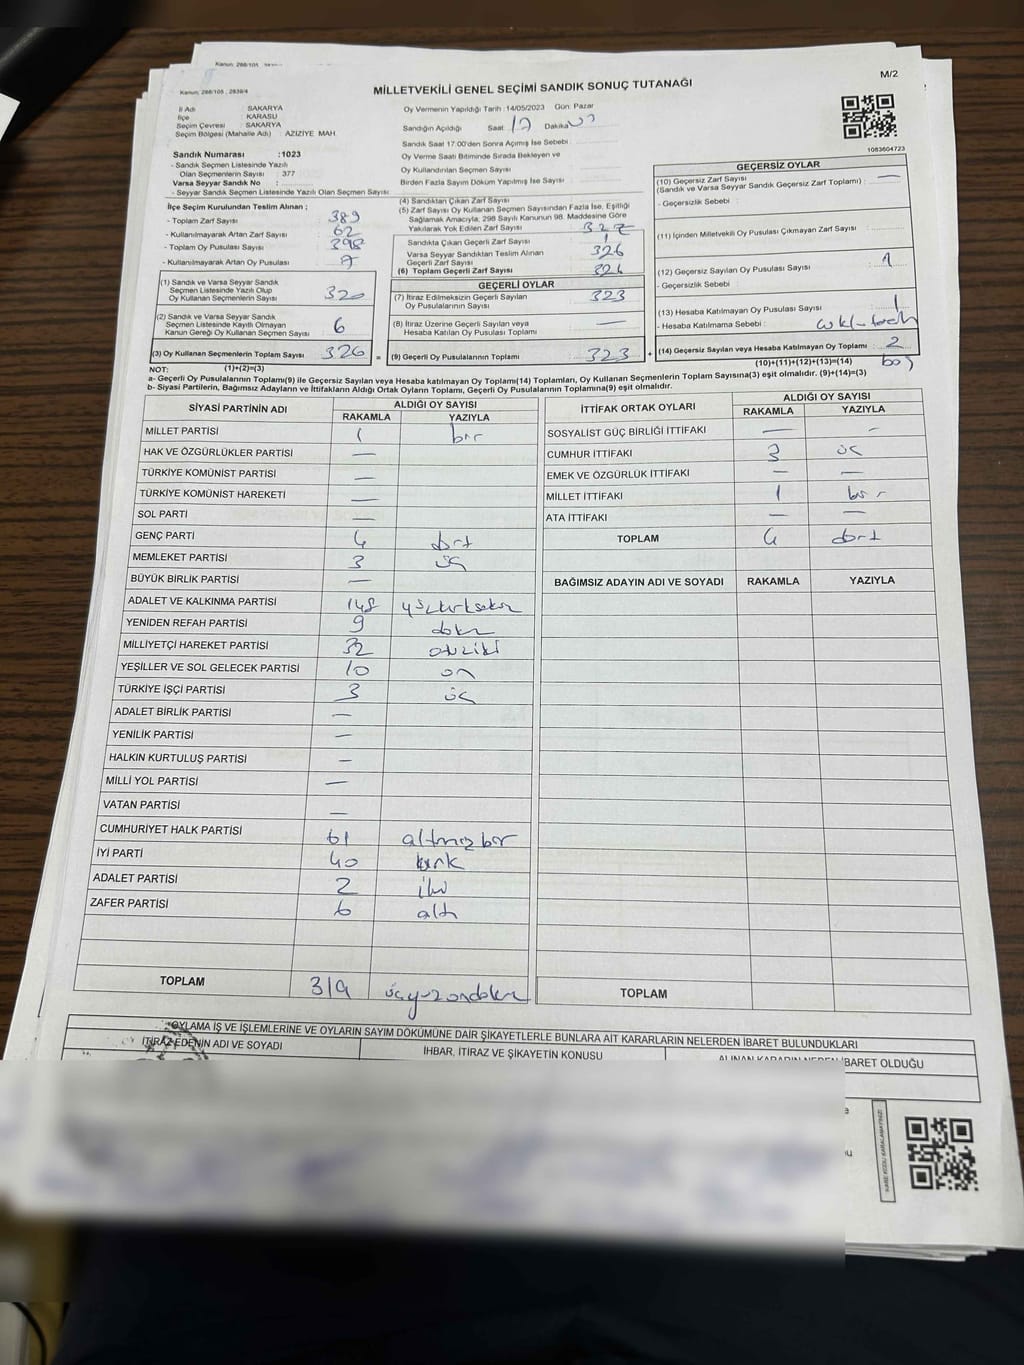 Kanun: 298/105
M/2
Kanun: 298/105 , 2839/4
MİLLETVEKİLİ GENEL SEÇİMİ SANDIK SONUÇ TUTANAĞI
İl Adı : SAKARYA
İlçe : KARASU
Seçim Çevresi : SAKARYA
Seçim Bölgesi (Mahalle Adı) : AZİZİYE MAH.
Oy Vermenin Yapıldığı Tarih :14/05/2023 Gün: Pazar
Sandığın Açıldığı Saat 17 Dakika
Sandık Saat 17.00'den Sonra Açılmış İse Sebebi :
Oy Verme Saati Bitiminde Sırada Bekleyen ve
Oy Kullandırılan Seçmen Sayısı :
Birden Fazla Sayım Döküm Yapılmış İse Sayısı :
1083604723
Sandık Numarası :1023
- Sandık Seçmen Listesinde Yazılı
Olan Seçmenlerin Sayısı : 377
Varsa Seyyar Sandık No :
- Seyyar Sandık Seçmen Listesinde Yazılı Olan Seçmen Sayısı :
İlçe Seçim Kurulundan Teslim Alınan ;
- Toplam Zarf Sayısı : 389
- Kullanılmayarak Artan Zarf Sayısı : 62
- Toplam Oy Pusulası Sayısı : 398
- Kullanılmayarak Artan Oy Pusulası :
(1) Sandık ve Varsa Seyyar Sandık
Seçmen Listesinde Yazılı Olup
Oy Kullanan Seçmenlerin Sayısı : 320
(2) Sandık ve Varsa Seyyar Sandık
Seçmen Listesinde Kayıtlı Olmayan
Kanun Gereği Oy Kullanan Seçmen Sayısı : 6
(3) Oy Kullanan Seçmenlerin Toplam Sayısı : 326 =
(1)+(2)=(3)
(4) Sandıktan Çıkan Zarf Sayısı : 327
(5) Zarf Sayısı Oy Kullanan Seçmen Sayısından Fazla İse, Eşitliği
Sağlamak Amacıyla; 298 Sayılı Kanunun 98. Maddesine Göre
Yakılarak Yok Edilen Zarf Sayısı : 1
Sandıkta Çıkan Geçerli Zarf Sayısı : 326
Varsa Seyyar Sandıktan Teslim Alınan
Geçerli Zarf Sayısı :
(6) Toplam Geçerli Zarf Sayısı : 326
GEÇERLİ OYLAR
(7) İtiraz Edilmeksizin Geçerli Sayılan
Oy Pusulalarının Sayısı : 323
(8) İtiraz Üzerine Geçerli Sayılan veya
Hesaba Katılan Oy Pusulası Toplamı : —
(9) Geçerli Oy Pusulalarının Toplamı : 323 +
GEÇERSİZ OYLAR
(10) Geçersiz Zarf Sayısı : —
(Sandık ve Varsa Seyyar Sandık Geçersiz Zarf Toplamı) :
- Geçersizlik Sebebi :
(11) İçinden Milletvekili Oy Pusulası Çıkmayan Zarf Sayısı : —
(12) Geçersiz Sayılan Oy Pusulası Sayısı : 1
- Geçersizlik Sebebi :
(13) Hesaba Katılmayan Oy Pusulası Sayısı : 1
- Hesaba Katılmama Sebebi :
(14) Geçersiz Sayılan veya Hesaba Katılmayan Oy Toplamı : 2
(10)+(11)+(12)+(13)=(14) boş
NOT:
a- Geçerli Oy Pusulalarının Toplamı(9) ile Geçersiz Sayılan veya Hesaba katılmayan Oy Toplamı(14) Toplamları, Oy Kullanan Seçmenlerin Toplam Sayısına(3) eşit olmalıdır. (9)+(14)=(3)
b- Siyasi Partilerin, Bağımsız Adayların ve İttifakların Aldığı Ortak Oyların Toplamı, Geçerli Oy Pusulalarının Toplamına(9) eşit olmalıdır.
SİYASİ PARTİNİN ADI ALDIĞI OY SAYISI
RAKAMLA YAZIYLA
MİLLET PARTİSİ 1 bir
HAK VE ÖZGÜRLÜKLER PARTİSİ —
TÜRKİYE KOMÜNİST PARTİSİ —
TÜRKİYE KOMÜNİST HAREKETİ —
SOL PARTİ —
GENÇ PARTİ 4 dört
MEMLEKET PARTİSİ 3 üç
BÜYÜK BİRLİK PARTİSİ —
ADALET VE KALKINMA PARTİSİ 148 yüzkırksekiz
YENİDEN REFAH PARTİSİ 9 dokuz
MİLLİYETÇİ HAREKET PARTİSİ 32 otuziki
YEŞİLLER VE SOL GELECEK PARTİSİ 10 on
TÜRKİYE İŞÇİ PARTİSİ 3 üç
ADALET BİRLİK PARTİSİ —
YENİLİK PARTİSİ —
HALKIN KURTULUŞ PARTİSİ —
MİLLİ YOL PARTİSİ —
VATAN PARTİSİ —
CUMHURİYET HALK PARTİSİ 61 altmışbir
İYİ PARTİ 40 kırk
ADALET PARTİSİ 2 iki
ZAFER PARTİSİ 6 altı
TOPLAM 319 üçyüzondokuz
İTTİFAK ORTAK OYLARI ALDIĞI OY SAYISI
RAKAMLA YAZIYLA
SOSYALİST GÜÇ BİRLİĞİ İTTİFAKI — —
CUMHUR İTTİFAKI 3 üç
EMEK VE ÖZGÜRLÜK İTTİFAKI — —
MİLLET İTTİFAKI 1 bir
ATA İTTİFAKI — —
TOPLAM 4 dört
BAĞIMSIZ ADAYIN ADI VE SOYADI RAKAMLA YAZIYLA
TOPLAM
OYLAMA İŞ VE İŞLEMLERİNE VE OYLARIN SAYIM DÖKÜMÜNE DAİR ŞİKAYETLERLE BUNLARA AİT KARARLARIN NELERDEN İBARET BULUNDUKLARI
İTİRAZ EDENİN ADI VE SOYADI İHBAR, İTİRAZ VE ŞİKAYETİN KONUSU ALINAN KARARIN NEDEN İBARET OLDUĞU